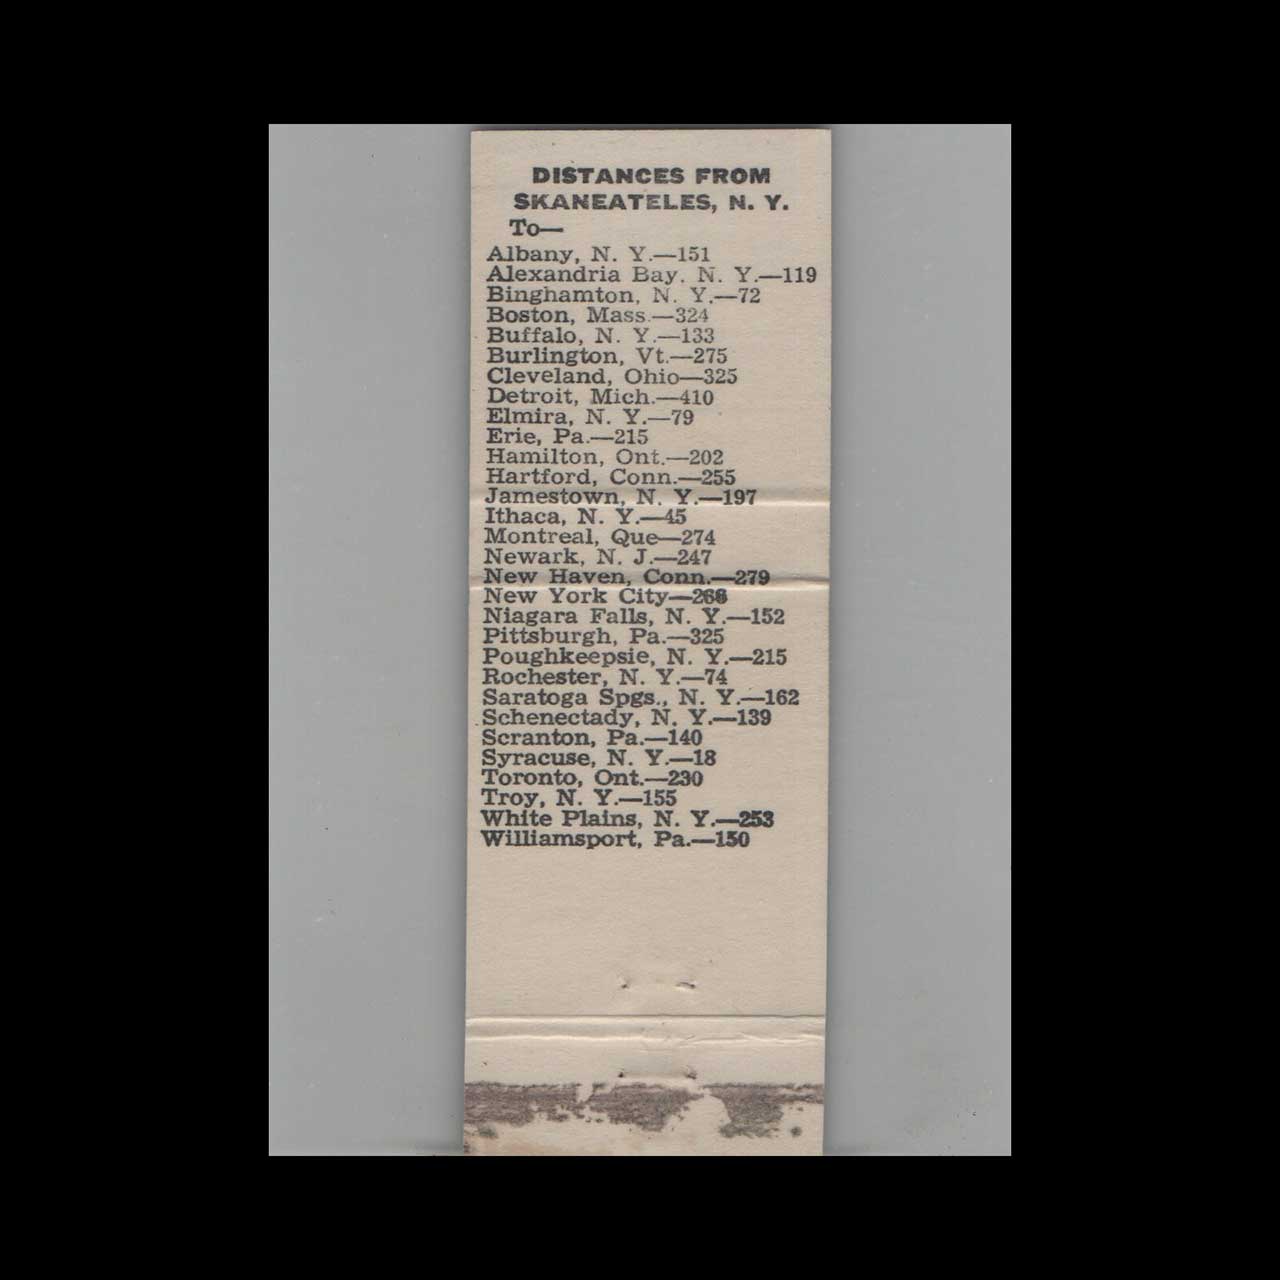 DISTANCES FROM
SKANEATELES, N. Y.
To—
Albany, N. Y.—151
Alexandria Bay, N. Y.—119
Binghamton, N. Y.—72
Boston, Mass.—324
Buffalo, N. Y.—133
Burlington, Vt.—275
Cleveland, Ohio—325
Detroit, Mich.—410
Elmira, N. Y.—79
Erie, Pa.—215
Hamilton, Ont.—202
Hartford, Conn.—255
Jamestown, N. Y.—197
Ithaca, N. Y.—45
Montreal, Que—274
Newark, N. J.—247
New Haven, Conn.—279
New York City
Niagara Falls, N. Y.—152
Pittsburgh, Pa.—325
Poughkeepsie, N. Y.—215
Rochester, N. Y.—74
Saratoga Spgs., N. Y.—162
Schenectady, N. Y.—139
Scranton, Pa.—140
Syracuse, N. Y.—18
Toronto, Ont.—230
Troy, N. Y.—155
White Plains, N. Y.—253
Williamsport, Pa.—150